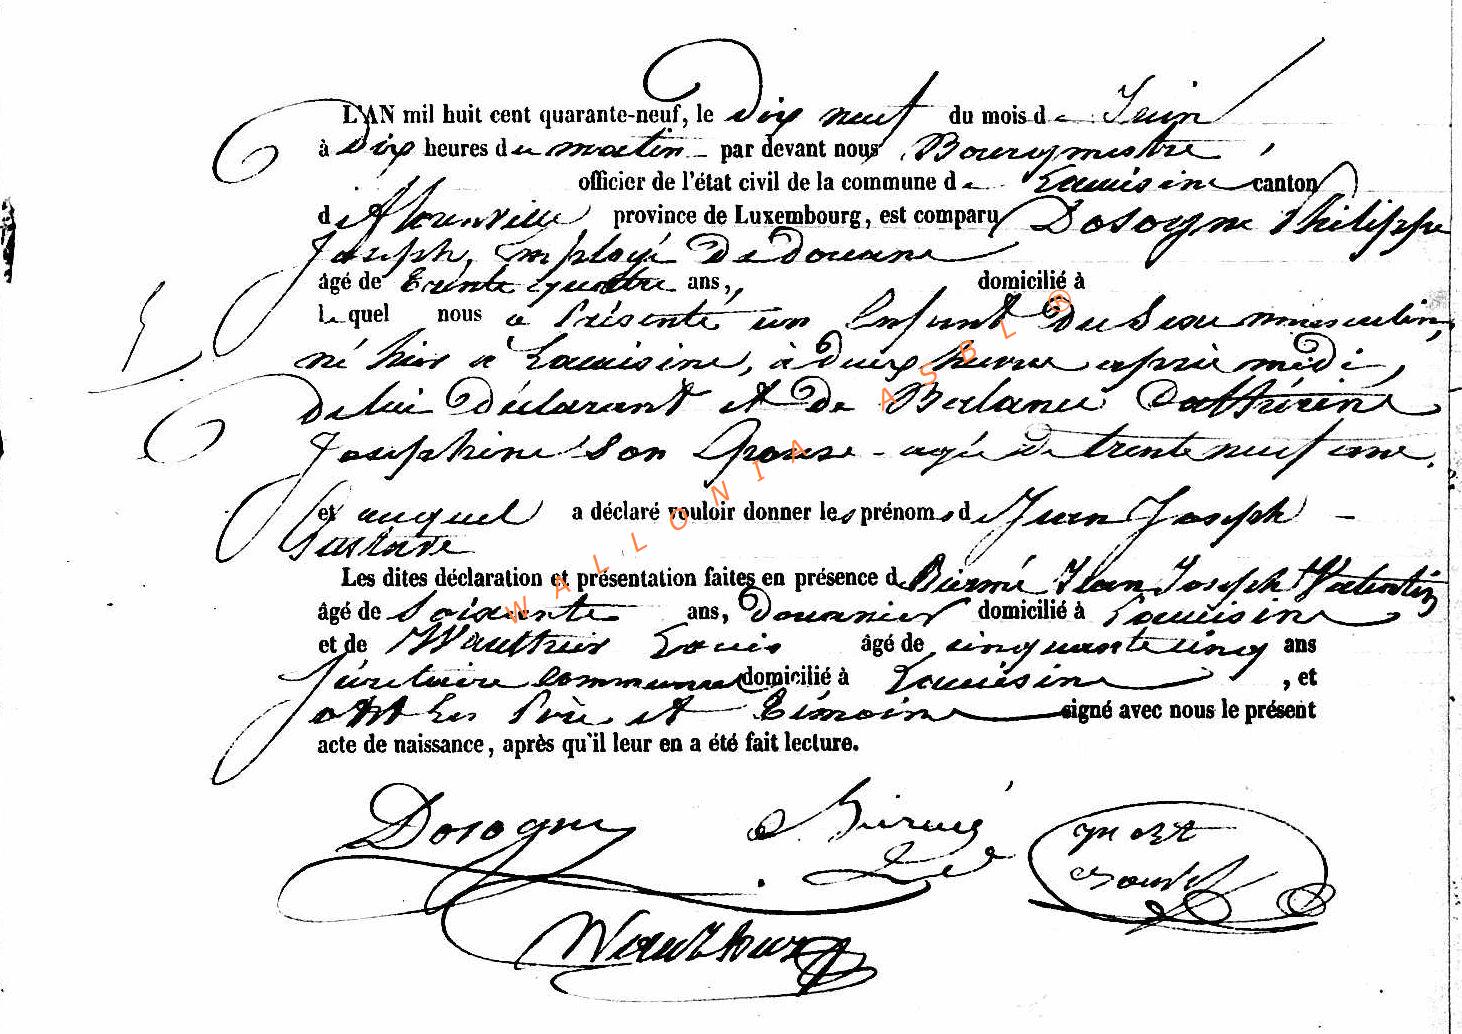 L'AN mil huit cent quarante-neuf, le Dix neuf du mois de Juin
à Dix heures du matin par devant nous Bourgmestre,
officier de l'état civil de la commune de Lacuisine canton
de Florenville province de Luxembourg, est comparu Dosogne Philippe
Joseph, employé De douane
âgé de trente quatre ans, domicilié à
lequel nous a Présenté un Enfant Du Sexe masculin,
né hier à Lacuisine, à Deux heure après midi,
De lui Déclarant et de Balance Cathérine
Josephine son Epouse agée De trente neuf ans.
et auquel a déclaré vouloir donner les prénoms de Jean Joseph
Gustave
Les dites déclaration et présentation faites en présence de Biermé Jean Joseph Valentin
âgé de Soixante ans, Douanier domicilié à Lacuisine
et de Wauthier Louis âgé de cinquante cinq ans
Sécretaire communal domicilié à Lacuisine, et
ont les Père et Témoins signé avec nous le présent
acte de naissance, après qu'il leur en a été fait lecture.
Dosogne Biermé
Wauthier
WALLONIA ASBL ©